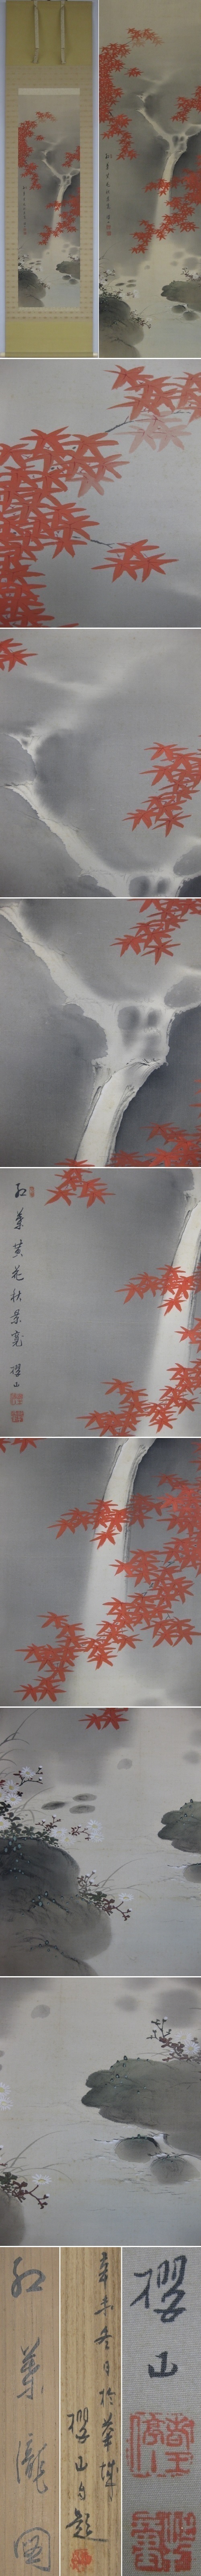 紅葉黄花秋景寛 櫻山
紅葉瀧図
辛未冬日於華城
櫻山自題
櫻山